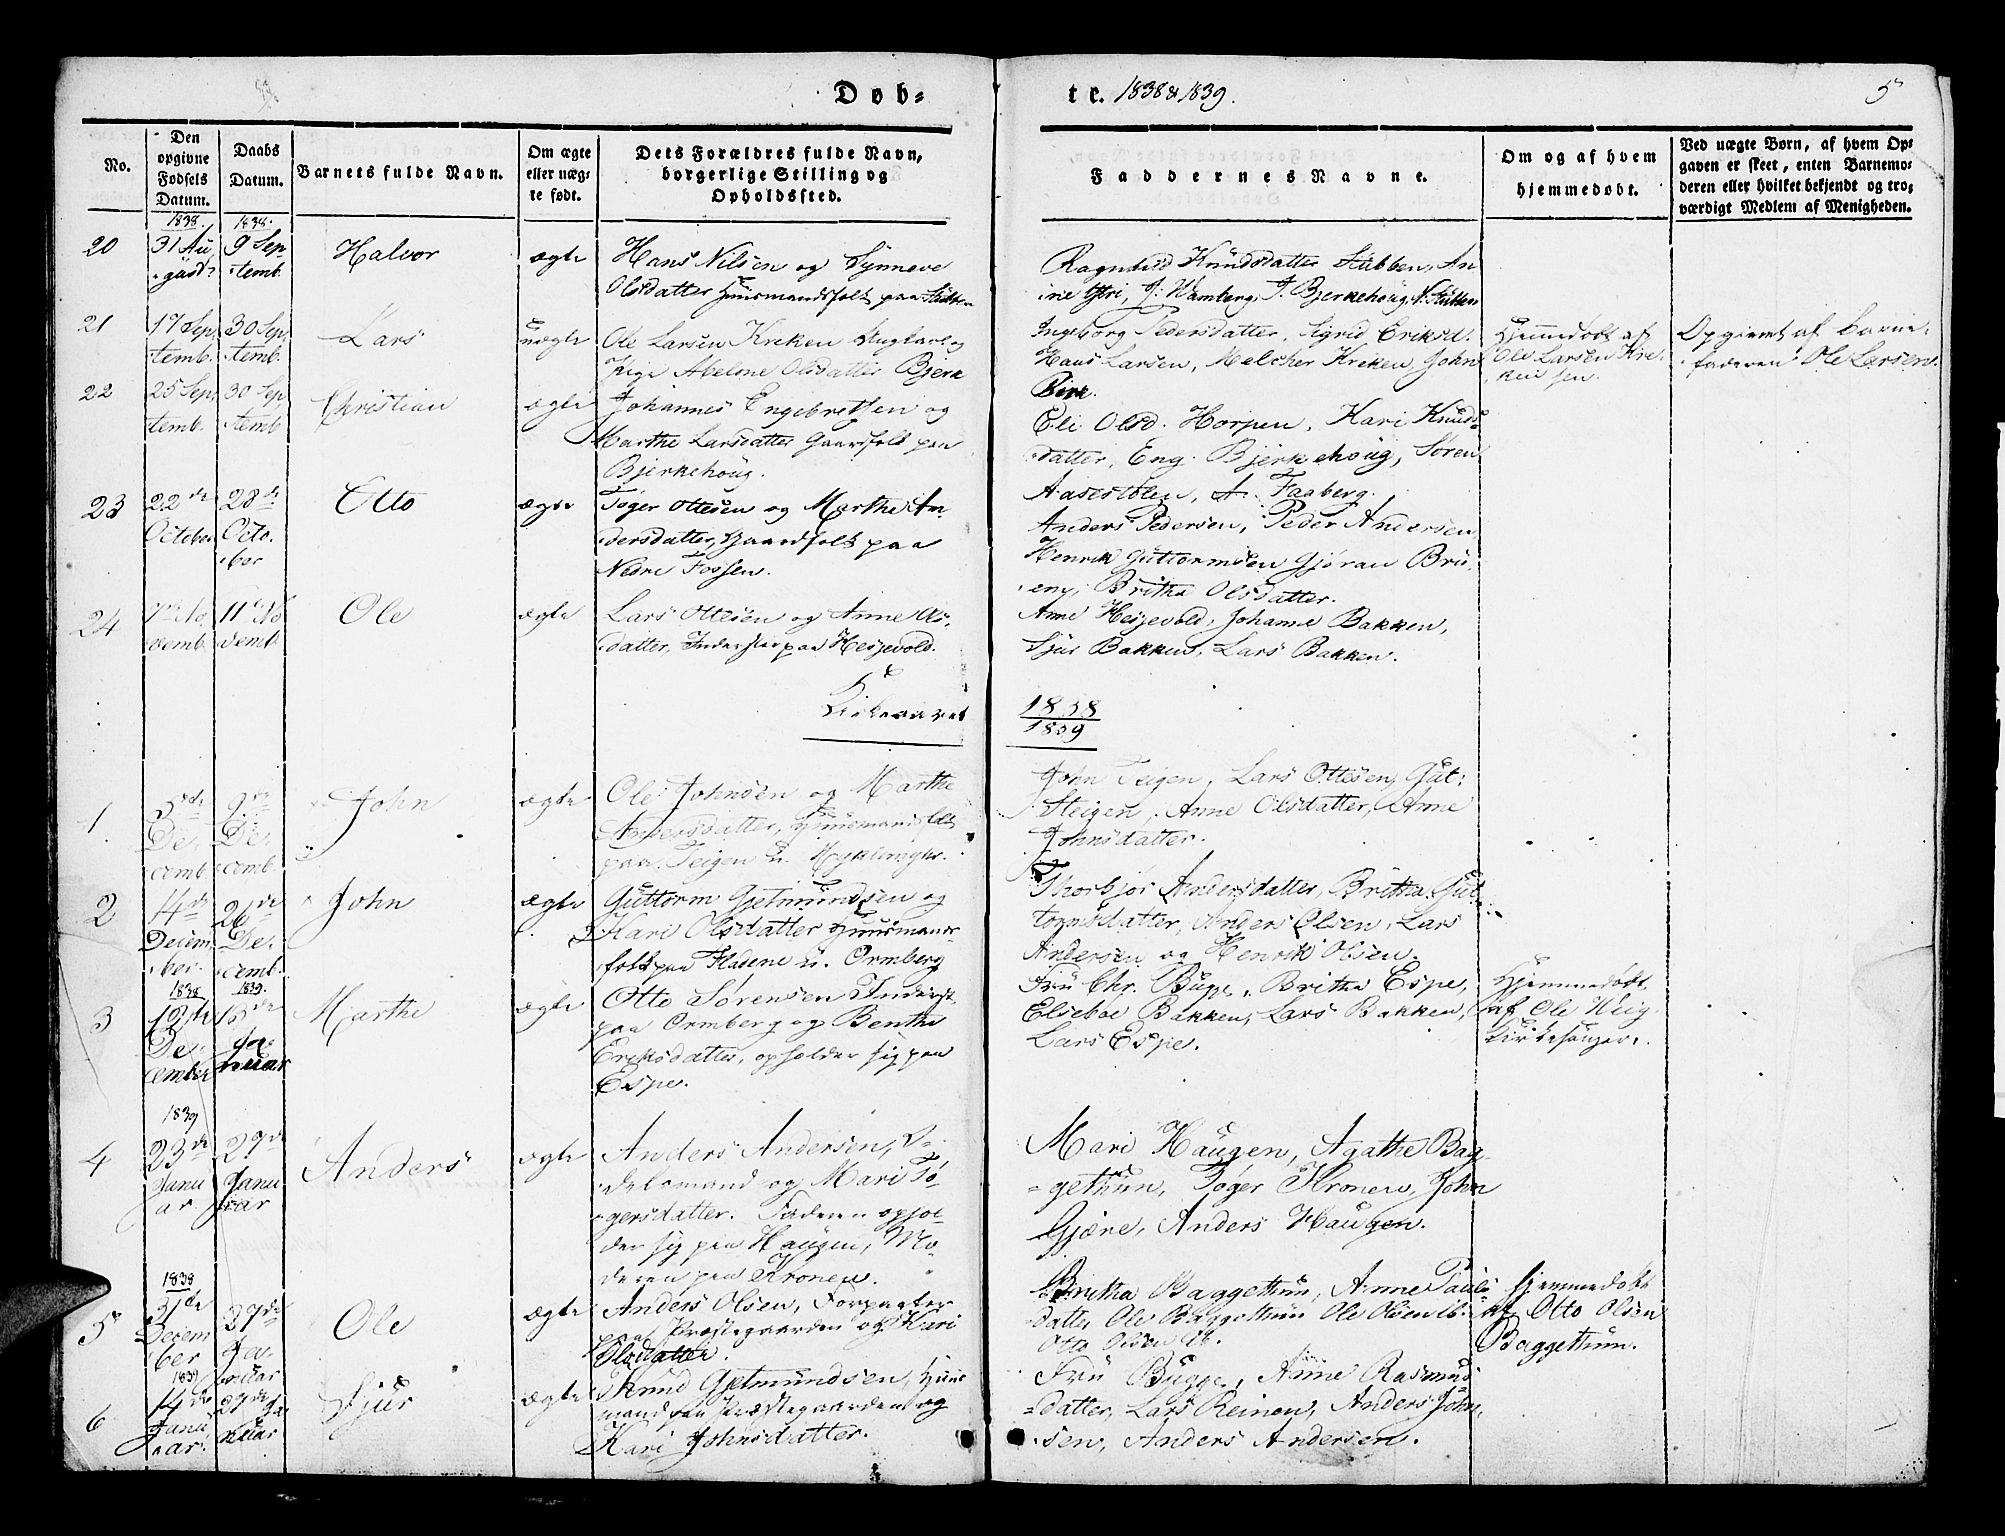 Døb=
te. 1838 & 1839.
5
No.
Den opgivne Fødsels Datum.
Daabs Datum.
Barnets fulde Navn.
Om ægte eller uægte født.
Dets Forældres fulde Navn, borgerlige Stilling og Opholdssted.
Faddernes Navne.
Om og af hvem hjemmedøbt.
Ved uægte Børn, af hvem Opgaven er skeet, enten Barnemoderen eller hvilket bekjendt og troværdigt Medlem af Menigheden.
1838
1838.
20
31 Au
gust
9 Sep
temb.
Halvor
ægte
Hans Nilsen og Synneve
Olsdatter Huusmandsfolk paa
Ragnhild Knudsdatter Stubben, An
ine J: Wamberg, J. Bjerkehoug,
21
17 Sep
temb.
30 Sep
temb.
Lars
uægte
Ole Larsen Kreken Ungkarl og
Pige Abelone Olsdatter Bjerk
Ingeborg Pedersdatter, Sigrid Eriksd.
Hans Larsen, Melcher Kreken, John
Birk.
Hjemmedøbt af
Ole Larsen Kre
ken sen.
Opgivet af Barne
faderen Ole Larsen.
22
25 Sep
temb.
30 Sep
temb
Christian
ægte
Johannes Engebritsen og
Marthe Larsdatter Gaardfolk paa
Bjerkehoug.
Eli Olsd. Horpen, Kari Knuds
datter, Eng. Bjerkehoug, Søren
Aasestølen, A. Faaberg.
23
22de
October
28de
Octo
ber
Otto
ægte
Tøger Ottesen og Marthe An
dersdatter, Gaardfolk paa
Nedre Fossen.
Anders Pedersen, Peder Andersen
Henrik Guttormsen Gjøran Bru
eng, Britha Olsdatter.
24
7de No
vemb
11te No
vemb
Ole
ægte
Lars Ottesen og Anne Ols
datter, Inderster paa Hesjevold.
Anne Hesjevold, Johanne Bakken,
Sjur Bakken, Lars Bakken.
Kirkeaaret
1838
1839
1
3de
De
cemb
9de
De
cemb
John
ægte
Ole Johnsen og Marthe
Andersdatter, Huusmandsfolk
paa Teigen u.
John Teigen, Lars Ottesen, Gut:
Steigen, Anne Olsdatter, Anne
Johnsdatter.
2
14de
Decem
ber
26de
De
cemb.
John
ægte
Guttorm Gjetmundsen og
Kari Olsdatter Huusmands
folk paa Fladene u. Ormberg
Thorbjør Andersdatter, Britha Gut
tormsdatter, Anders Olsen, Lars
Andersen og Henrik Olsen.
1838
1839.
3
12de
De
cember
Marthe
ægte
Otto Sørensen Inderst
paa Ormberg og Benthe
Eriksdatter, opholder sig paa
Espe.
Fru Chr. Bugge, Britha Espe,
Elsebøe Bakken, Lars Bakken,
Lars Espe.
Hjemmedøbt
af Ole Weig
Kirkesanger.
1839
4
23de
Janu
ar
27de
Janu
ar
Anders
ægte
Anders Andersen,
delsmand og Mari Tø
gersdatter. Faderen ophol
der sig paa Haugen, Mo
deren paa Kronen.
Mari Haugen, Agathe Bag
gethun, Tøger Kronen, John
Gjøne, Anders Haugen.
1838
5
31de
Decem
ber
27de
Ja
nuar
Ole
ægte
Anders Olsen, Forpagter
paa Præstegaarden og Kari
Olsdatter.
Britha Baggethun, Anne Pauls
datter, Ole Baggethun Ole Olsen ib.
Otto Olsen ib.
Hjemmedøbt
af Otto Olsen
Baggethun.
1839
6
14de
Janu
ar.
27de Ja
nuar
Sjur
ægte
Knud Gjetmundsen, Huus
mand paa Præstegaarden og
Kari Johnsdatter.
Fru Bugge, Anne Rasmus
datter, Lars Reinen, Anders John
sen, Anders Andersen.